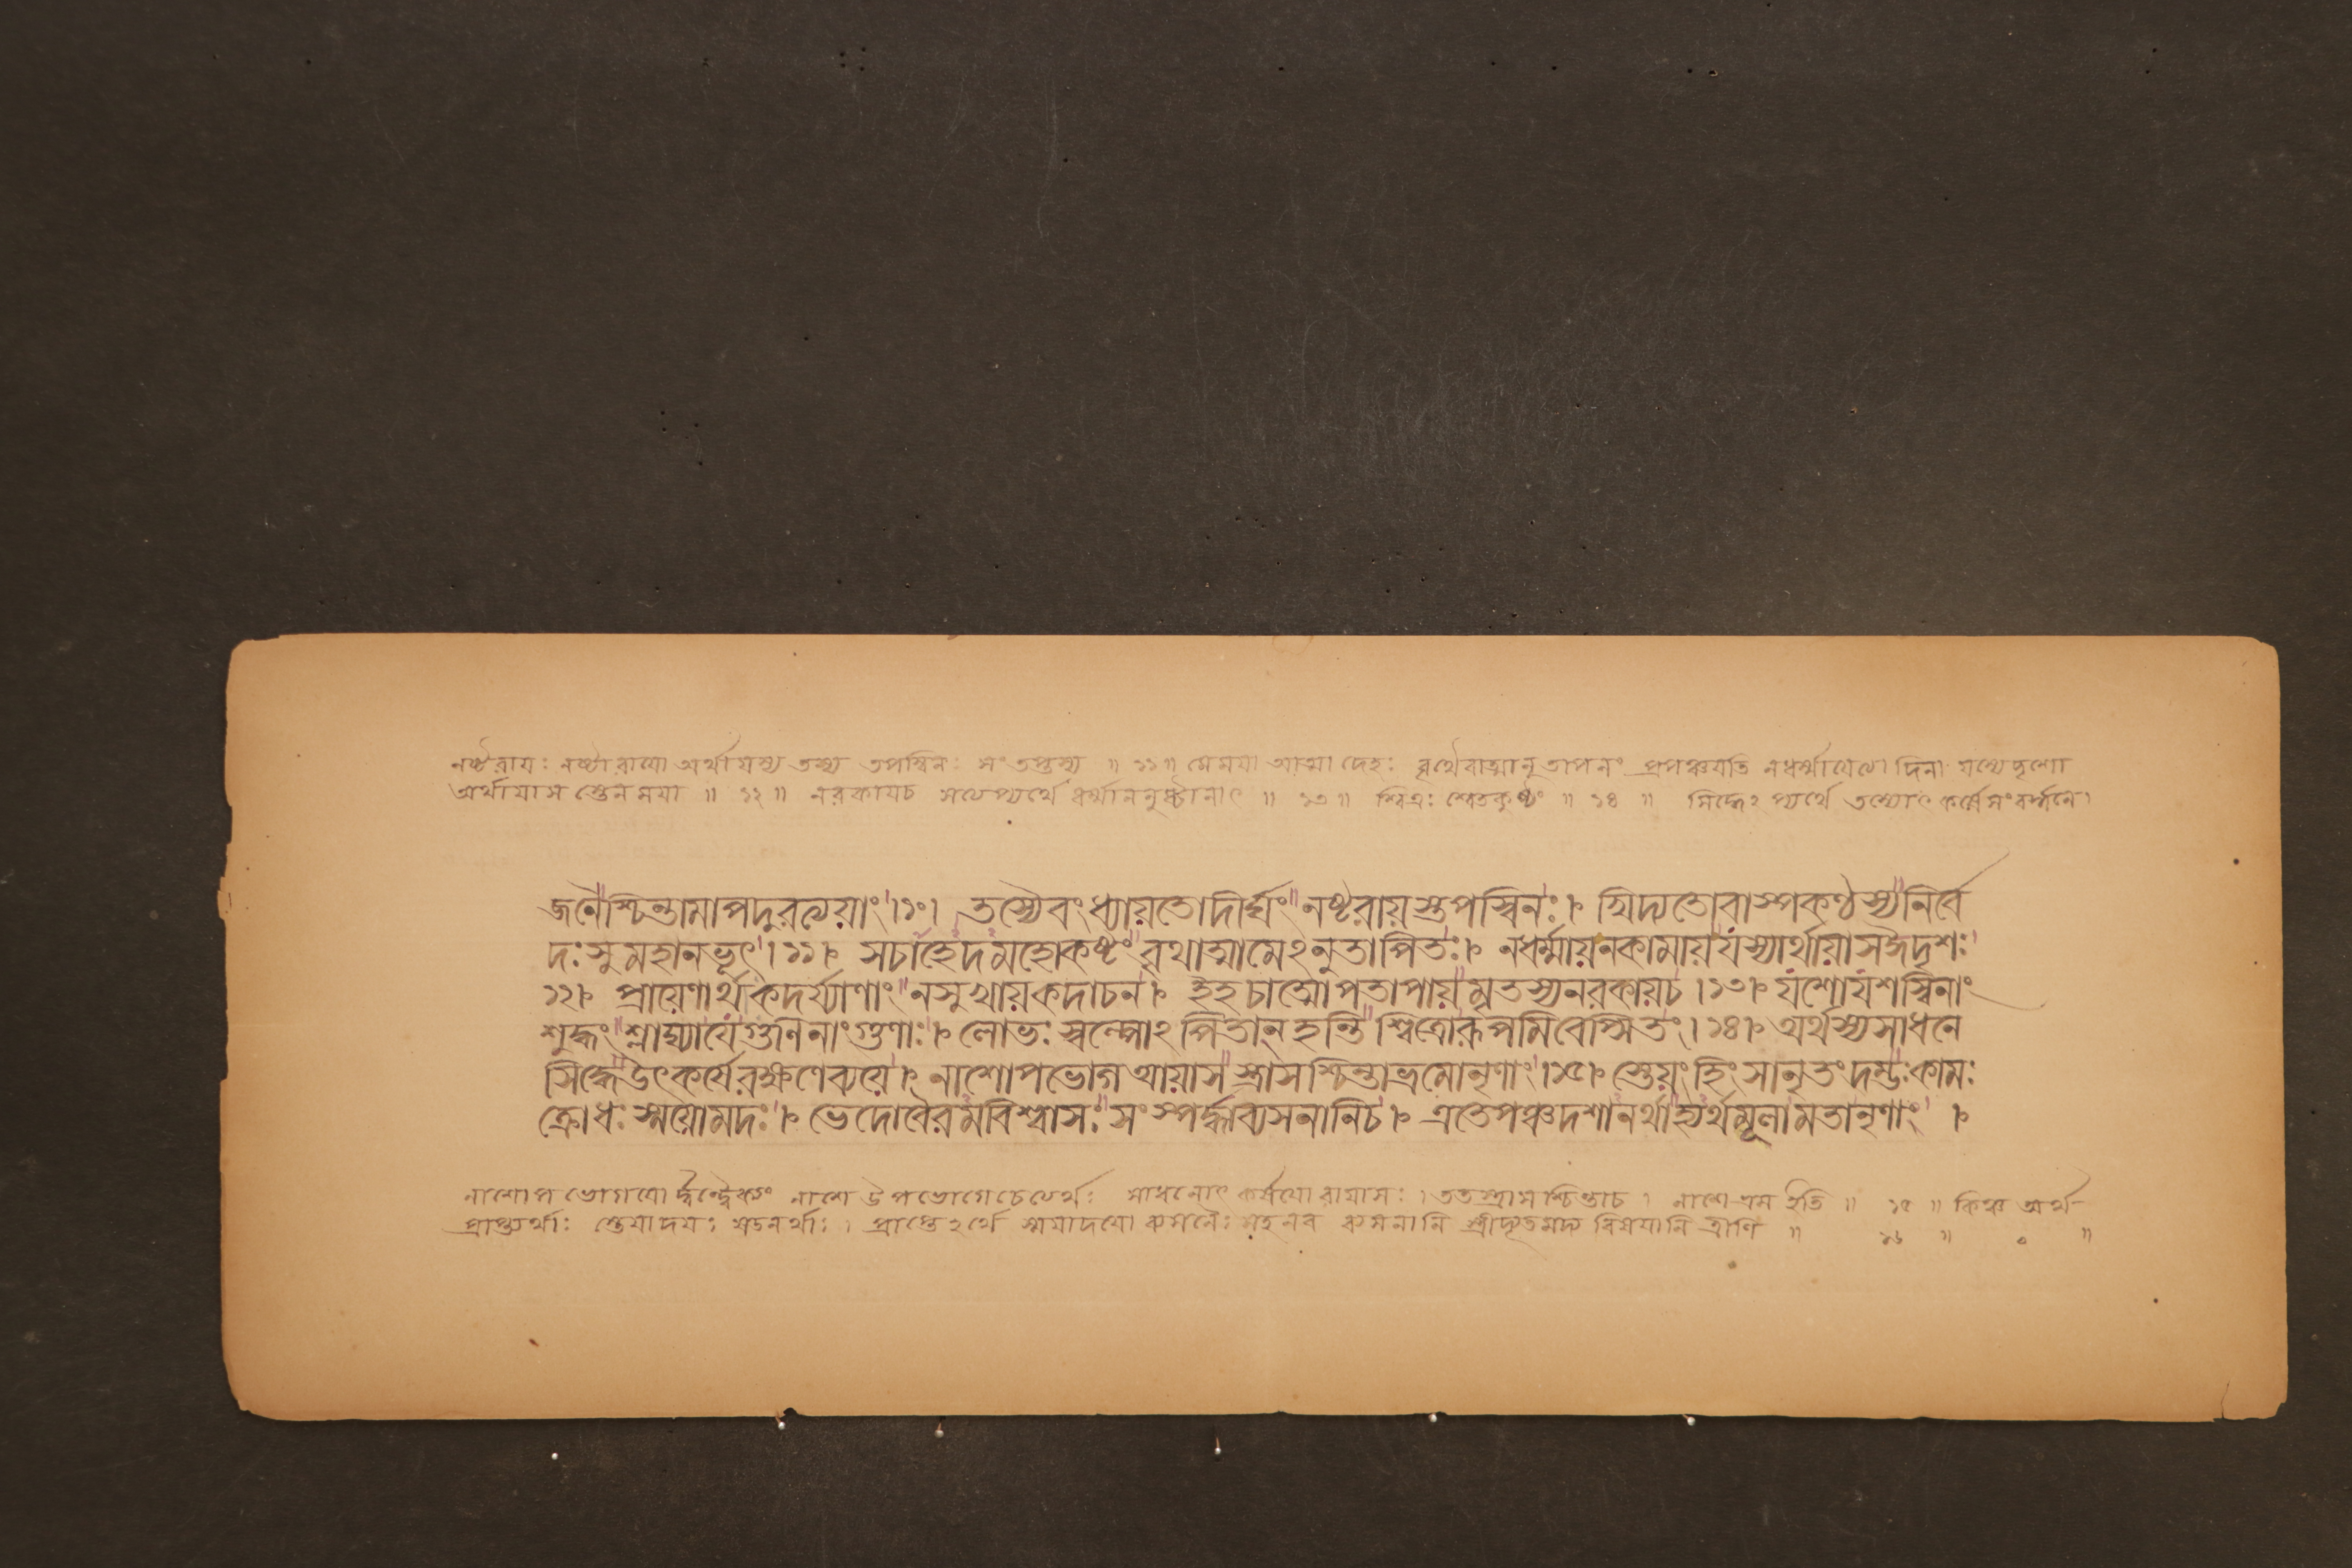 নষ্টরায়ঃ নষ্টারায়ো অর্থায়স্য তস্য তপস্বিনঃ সংতপ্তস্য ॥ ১১ ॥ মেময়া আত্মা দেহঃ বৃথৈবাত্মানুতাপনং প্রপঞ্চয়তি নধর্ম্মায়েত্যাদিনা যস্যেদৃশো
অর্থায়াস স্তেন ময়া ॥ ১২ ॥ নরকায়চ সত্যেপ্যর্থে ধর্ম্মাননুষ্ঠানাৎ ॥ ১৩ ॥ শ্বিত্রঃ শ্বেতকুষ্ঠং ॥ ১৪ ॥ সিদ্ধেঽপ্যর্থে তস্যোৎকর্ষে সংবর্দ্ধনে।
জনৈশ্চিন্তামাপদুরত্যয়াং।১০। তস্যৈবং ধ্যায়তোদীর্ঘং নষ্টরায়স্তপস্বিনঃ। খিদ্যতোবাস্পকণ্ঠস্যনির্বে
দঃ সুমহানভূৎ।১১। সচাহেদমহোকষ্টং বৃথাত্মামেঽনুতাপিতঃ। নধর্ম্মায়নকামায়যস্যার্থায়াসঈদৃশঃ
১২। প্রায়েণার্থাকদর্য্যাণাং নসুখায়কদাচন। ইহচাত্মোপতাপায়মৃতস্যনরকায়চ।১৩। যশোযশস্বিনাং
শুদ্ধং শ্লাঘ্যাযেগুণিনাংগুণাঃ। লোভঃ স্বল্পোঽপিতান্ হন্তি শ্বিত্রোরূপমিবেপ্সিতং।১৪। অর্থস্যসাধনে
সিদ্ধেউৎকর্ষেরক্ষণেব্যয়ে। নাশোপভোগআয়াসস্ত্রাসশ্চিন্তাভ্রমোনৃণাং।১৫। স্তেয়ং হিংসানৃতং দম্ভঃকামঃ
ক্রোধঃ স্ময়োমদঃ। ভেদোবৈরমবিশ্বাসঃ সংস্পর্দ্ধাব্যসনানিচ। এতেপঞ্চদশানর্থাহ্যর্থমূলামতানৃণাং।
নাশোপভোগয়ো র্দ্বন্দ্বৈক্যং নাশে উপভোগেচেত্যর্থঃ সাধনোৎকর্ষয়োরায়াসঃ। ততস্ত্রাসশ্চিন্তাচ। নাশে ভ্রম ইতি ॥ ১৫ ॥ কিঞ্চ অর্থ-
প্রাপ্ত্যর্থাঃ স্তেয়াদয়ঃ ষড়নর্থাঃ। প্রাপ্তেঽর্থে স্ময়াদয়ো ব্যসনৈঃ সহ নব ব্যসনানি স্ত্রীদ্যূতমদ্য বিষয়ানি ত্রীণি ॥ ১৬ ॥ ০ ॥